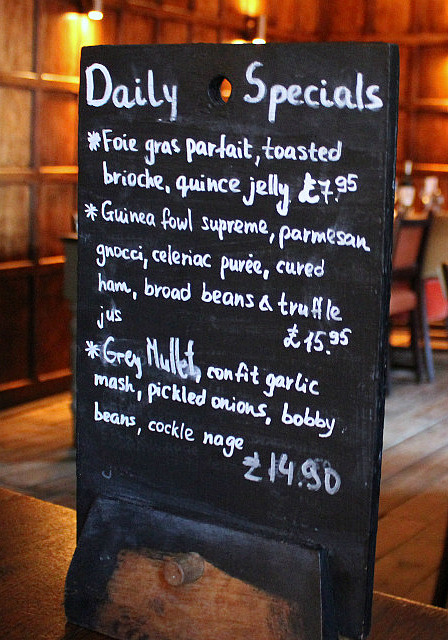 Daily Specials
*Foie gras parfait, toasted
brioche, quince jelly £7.95
*Guinea fowl supreme, parmesan
gnocci, celeriac purée, cured
ham, broad beans & truffle
jus
£15.95
*Grey Mullet, confit garlic
mash, pickled onions, bobby
beans, cockle nage
£14.90